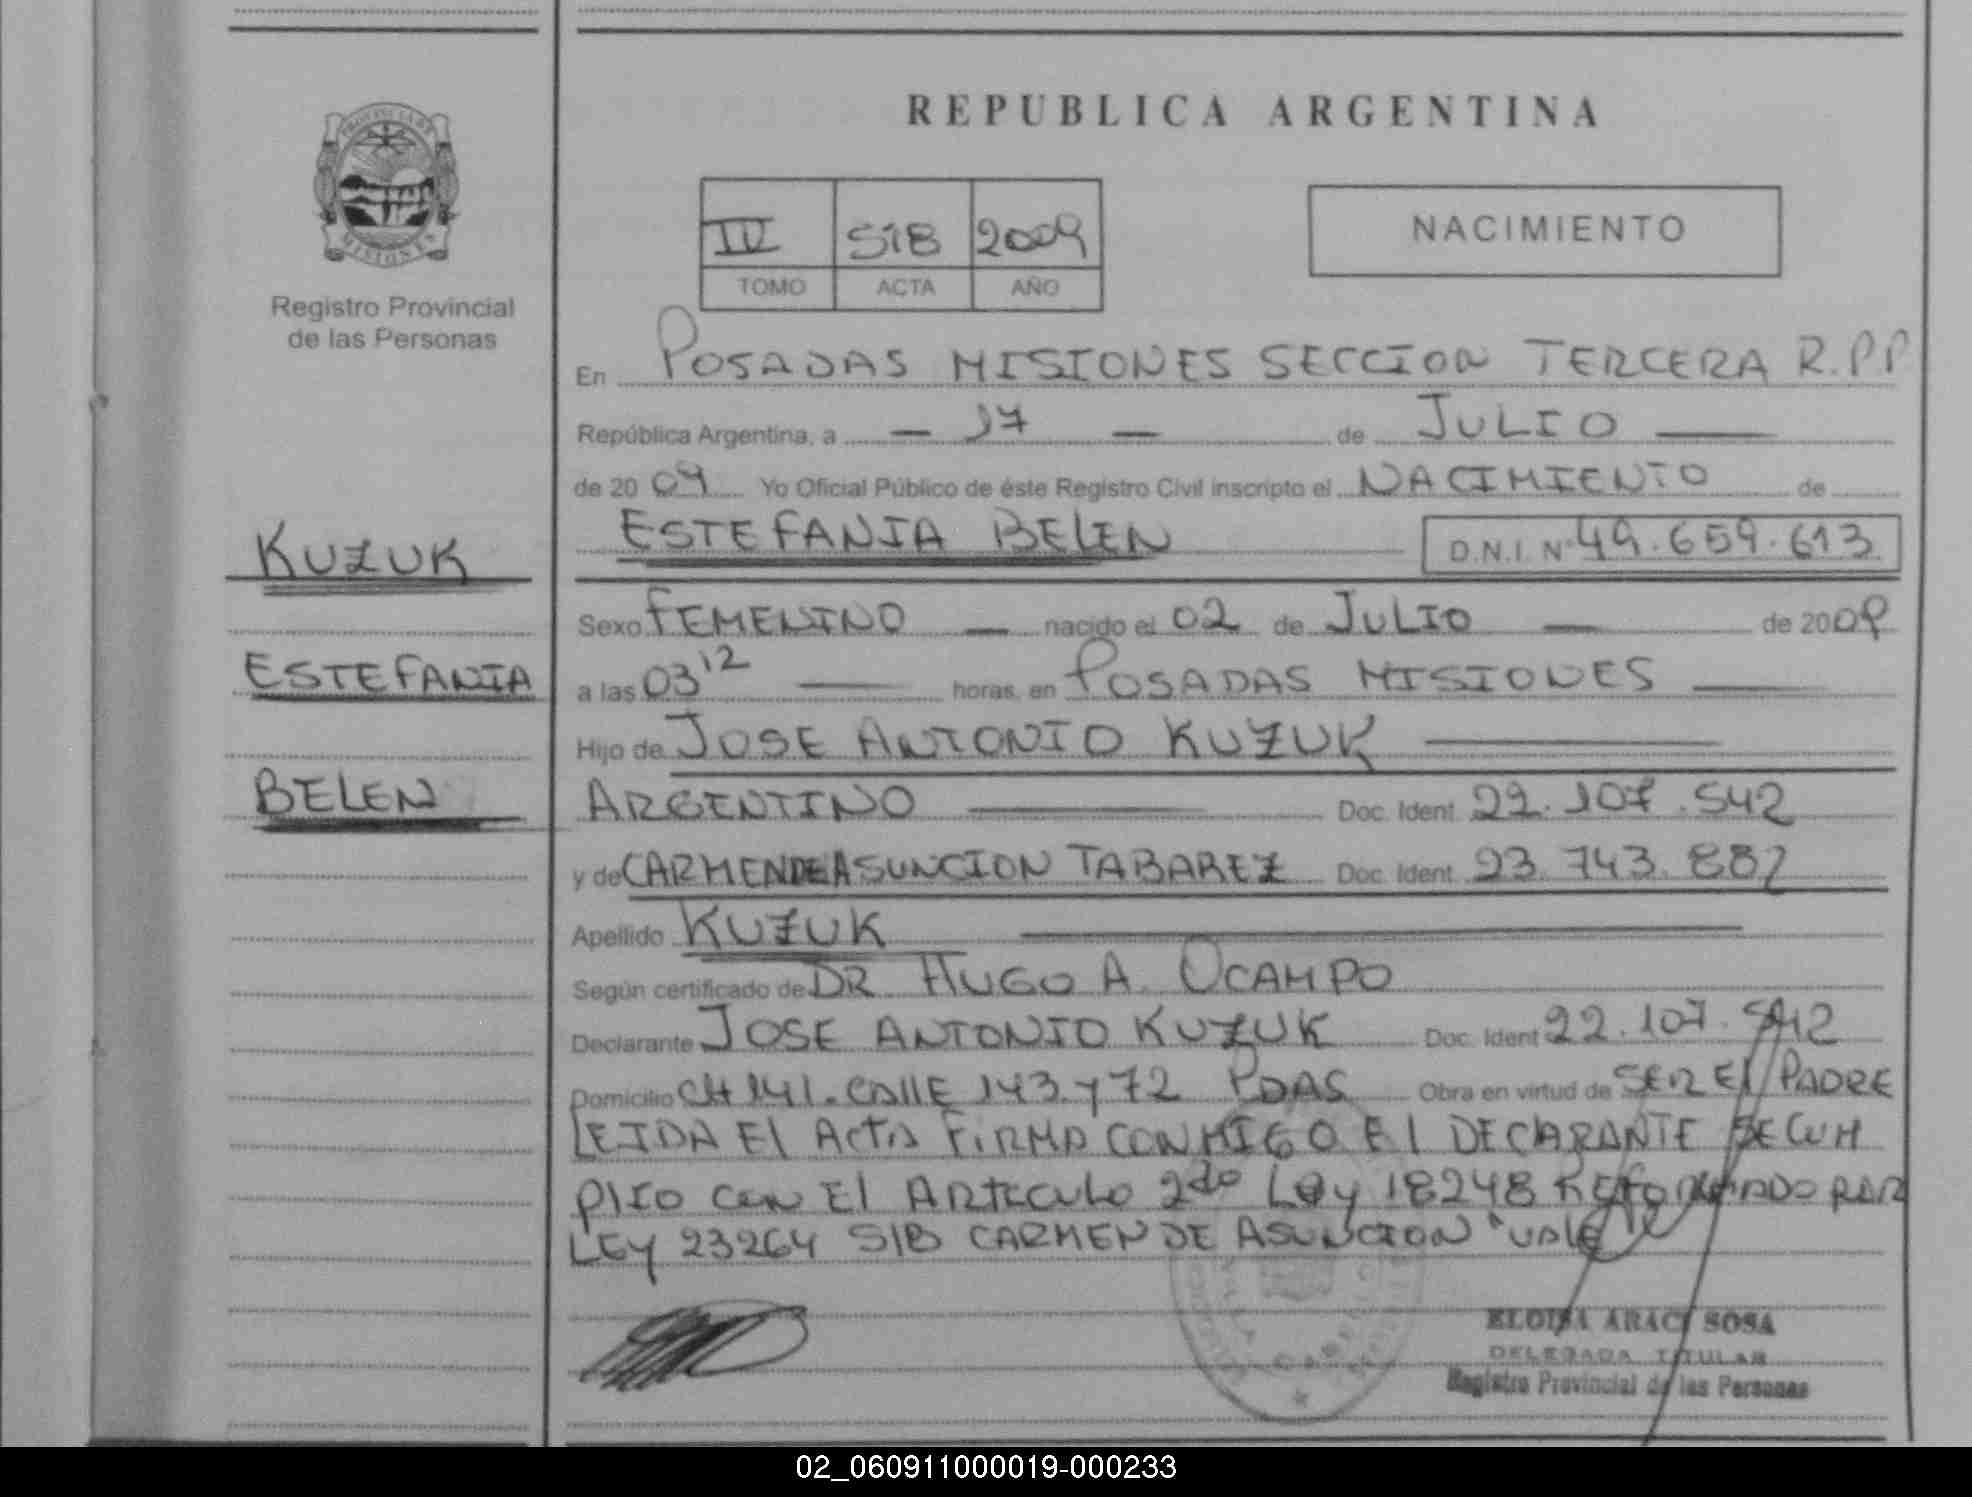 REPUBLICA ARGENTINA
PROVINCIA DE
MISIONES
Registro Provincial
de las Personas
IV 518 2009
TOMO ACTA AÑO
NACIMIENTO
En POSADAS MISIONES SECCION TERCERA R.P.P
República Argentina, a — 17 — de JULIO —
de 20 09 Yo Oficial Público de éste Registro Civil inscripto el NACIMIENTO de
ESTEFANIA BELEN D.N.I. Nº 49.659.613
KUZUK
ESTEFANIA
BELEN
Sexo FEMENINO — nacido el 02 de JULIO — de 2009
a las 03 12 — horas, en POSADAS MISIONES —
Hijo de JOSE ANTONIO KUZUK —
ARGENTINO — Doc. Ident. 22.107.542
y de CARMEN DE ASUNCION TABAREZ Doc. Ident. 23.743.882
Apellido KUZUK —
Según certificado de DR HUGO A. OCAMPO
Declarante JOSE ANTONIO KUZUK Doc. Ident 22.107.542
Domicilio CH 141. CALLE 143 y 72 PDAS Obra en virtud de SER El PADRE
LEIDA El ActA FIRMA CONMIGO El DECLARANTE SE CUM
PlIO CON El ARTICULO 2do LEy 18248 REFORMADO POR
LEy 23264 S/B CARMEN DE ASUNCION "VALE"
ELOISA ARACI SOSA
DELEGADA TITULAR
Registro Provincial de las Personas
02_060911000019-000233